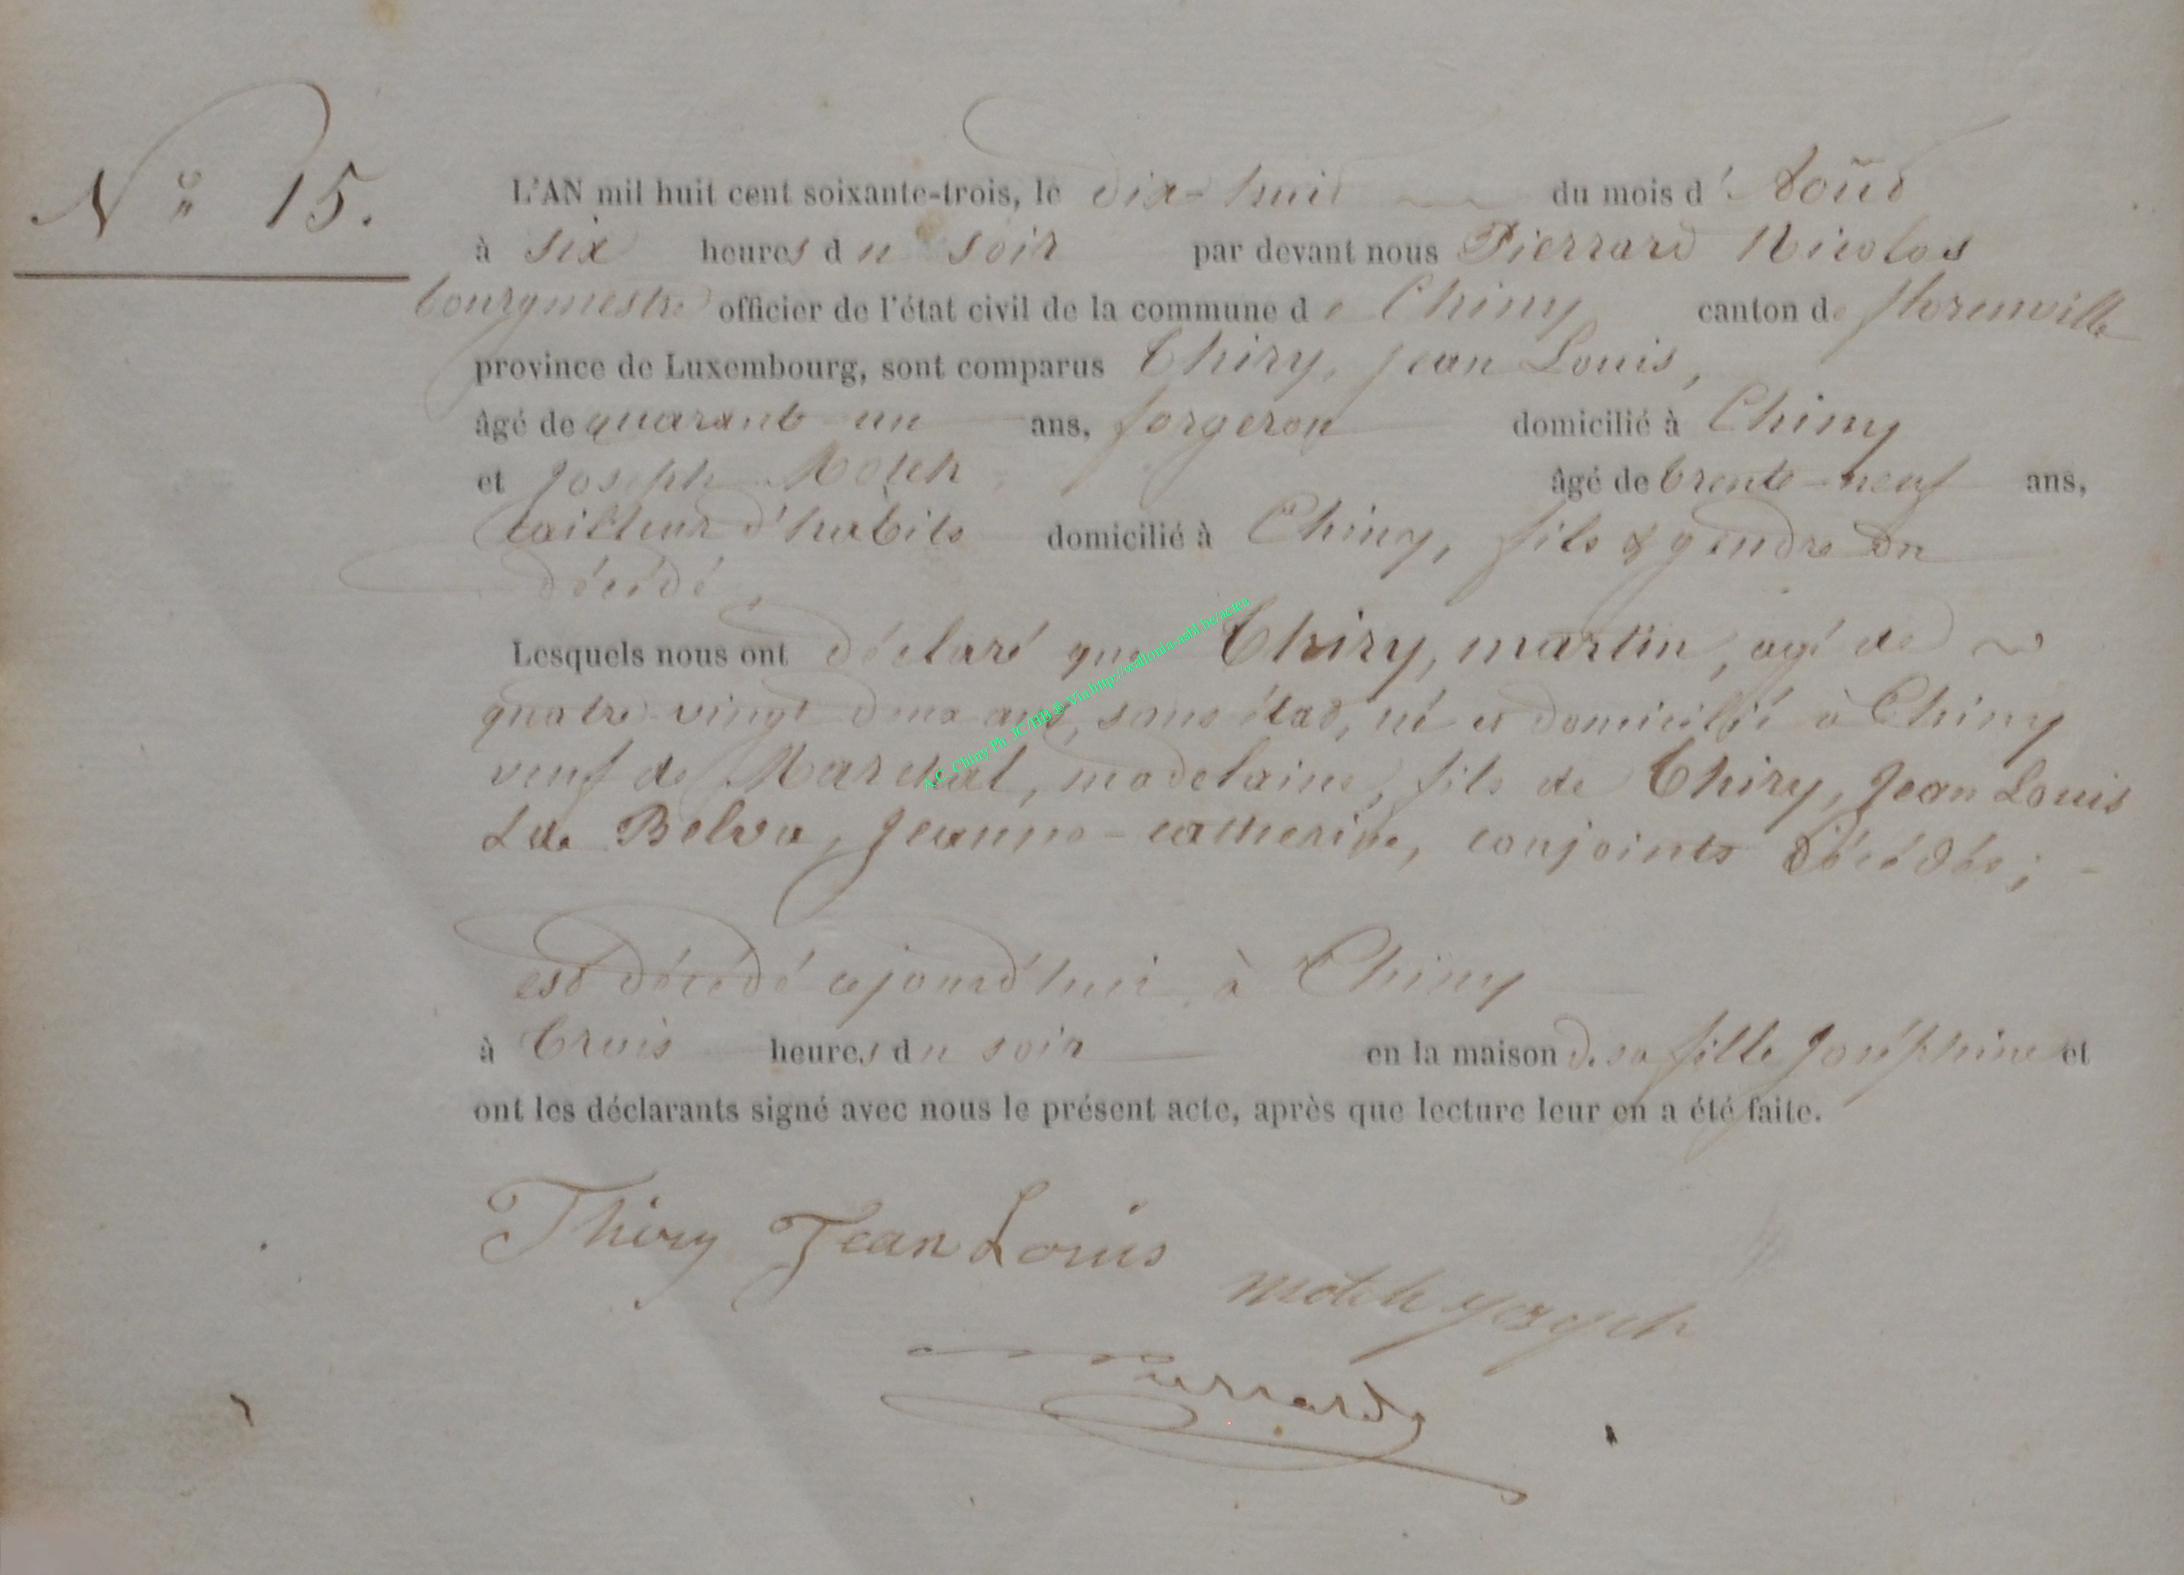 N° 15.
L'AN mil huit cent soixante-trois, le dix-huit du mois d'Août
à six heures du soir par devant nous Pierrard Nicolas
bourgmestre officier de l'état civil de la commune de Chiny canton de florenville
province de Luxembourg, sont comparus Thiry, Jean Louis,
âgé de quarante-un ans, forgeron domicilié à Chiny
et Joseph Motch âgé de trente-neuf ans,
tailleur d'habits domicilié à Chiny, fils & gendre du
décédé,
Lesquels nous ont déclaré que Thiry, martin, agé de
quatre-vingt deux ans, sans état, né et domicilié à Chiny
veuf de Marchal, madelaine, fils de Thiry, Jean Louis
& de Belva, Jeanne-catherine, conjoints décédés;
est décédé cejourd'hui à Chiny
à trois heures du soir en la maison de sa fille Joséphine et
ont les déclarants signé avec nous le présent acte, après que lecture leur en a été faite.
Thiry Jean Louis
motch joseph
Pierrard
A.C. Chiny Ph. JC/BB & Via http://wallonia-asbl.be/actes